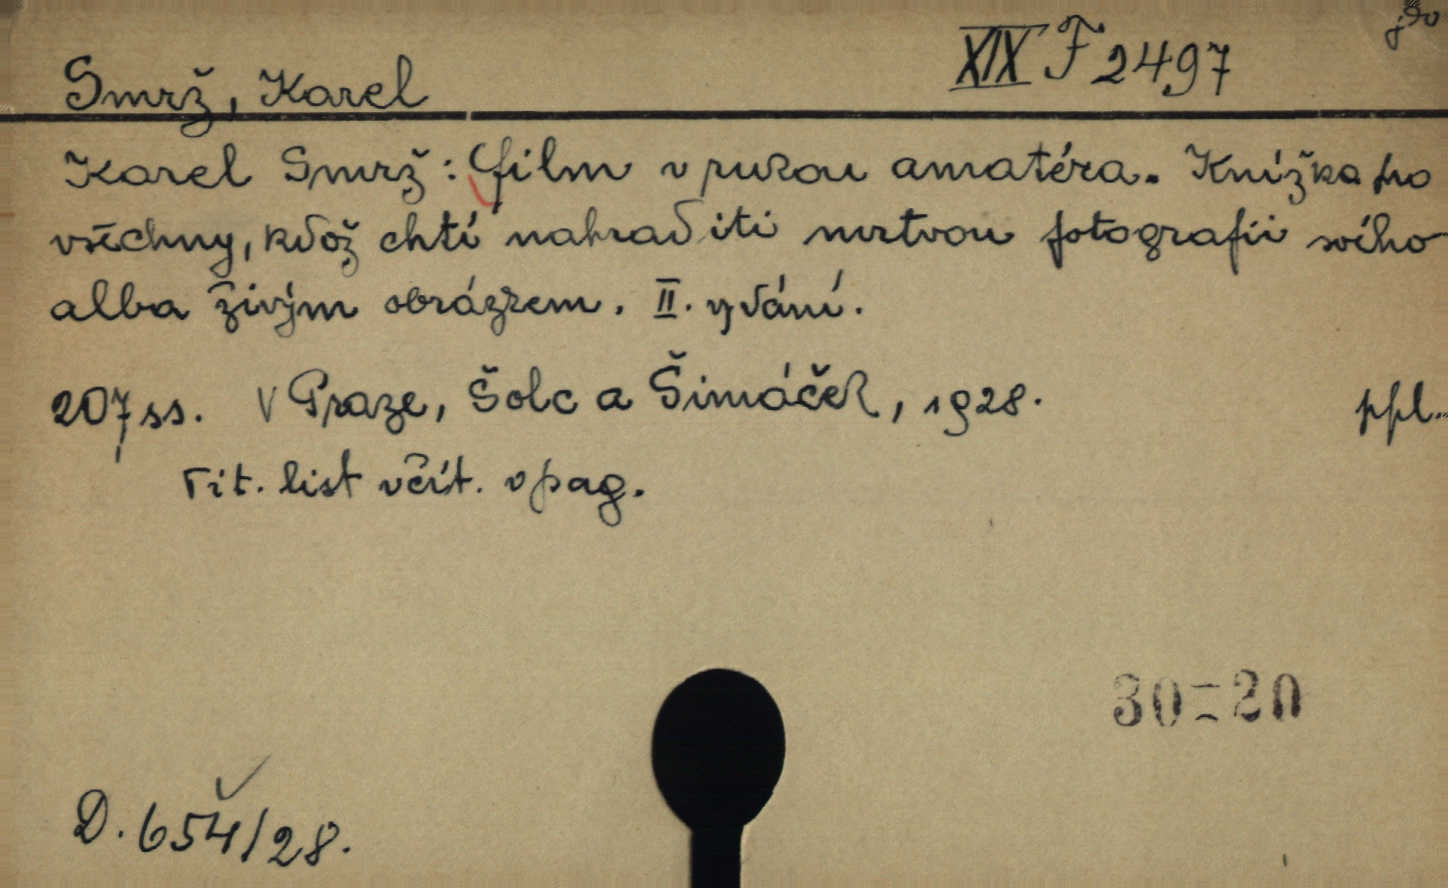 XIX F 2497
Smrž, Karel
Karel Smrž: Film v rukou amatéra. Knížka pro
všechny, kdož chtí nahraditi mrtvou fotografii svého
alba živým obrázkem. II. vydání.
207 ss. V Praze, Šolc a Šimáček, 1928. ppl.
Tit. list včít. v pag.
30=20
D. 654/28.